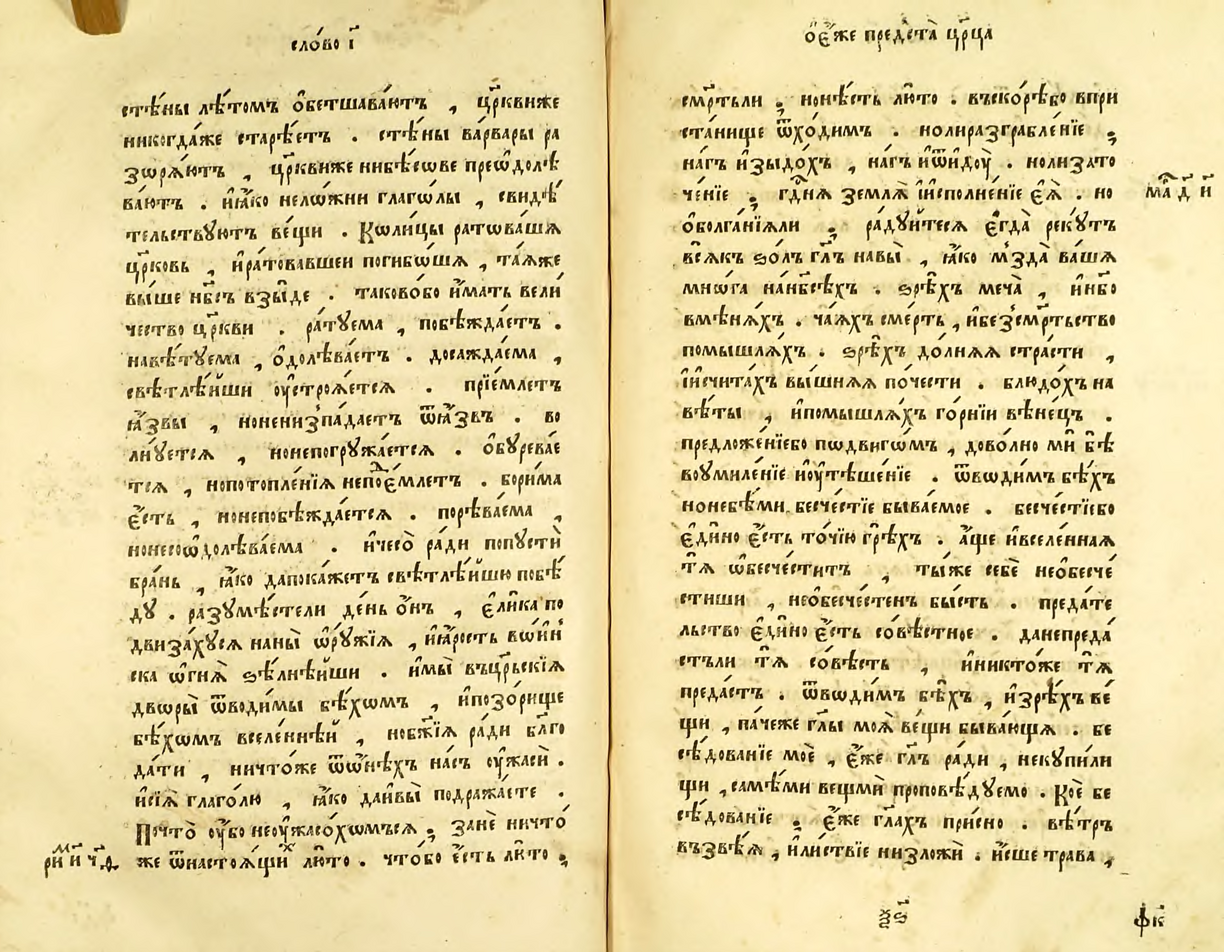 сло́во і҃
стѣ́ны лѣ́томъ ѻ҆бетшава́ютъ , цр҃квиже
никогда́же старѣ́етъ . стѣ́ны ва́рвары ра
зѡрѧ́ютъ , цр҃квиже нибѣ́сѡве преѡ҆долѣ
ва́ютъ . и҆ꙗ҆́ко нело́жни глаго́лы , свидѣ́
тельствꙋютъ ве́щи . Кѡли́цы ратѡва́шѧ
цр҃ковь , и҆ра́товавшеи поги́бѡшѧ , та́ꙗже
вы́ше нб҃съ взы́де . таково́бо и҆́мать вели́
чество цр҃кви . ра́тꙋема , побѣжда́етъ .
навѣ́тꙋема , ѻ҆долѣва́етъ . досажда́ема ,
свѣтлѣ́йши оу҆строѧ́етсѧ . прїе́млетъ
ꙗ҆́звы , ноненизпа́даетъ ѿꙗ҆́звъ . во
лнꙋ́етсѧ , нонепогрꙋжа́етсѧ . ѻ҆бꙋрева́е
тсѧ , нопотопле́нїѧ непод̾е́млетъ . бори́ма
є҆́сть , нонепобѣжда́етсѧ . порѣва́ема ,
нонесоѡ҆долѣва́ема . и҆чесо̀ ра́ди попꙋстѝ
бра́нь , ꙗ҆́ко дапока́жетъ свѣтлѣ́йшю побѣ́
дꙋ . разꙋмѣ́стели де́нь ѻ҆́нъ , є҆ли́ка по
двиза́хꙋсѧ наны̀ ѡ҆рꙋ́жїѧ , и҆ꙗ҆́рость во́ин
ска ѡ҆гнѧ̀ ѕѣ́лнѣйши . и҆мы̀ въцр҃ьскїѧ
дворы̀ ѿводи́мы бѣ́хѡмъ , и҆позо́рище
бѣ́хѡмъ вселе́ннѣй , нобж҃їѧ ра́ди бл҃го
да́ти , ничто́же ѿѡ҆нѣ́хъ на́съ оу҆жасѝ .
и҆сїѧ̀ глаго́лю , ꙗ҆́ко даи҆вы̀ подража́ете .
Почто̀ оу҆́бо неоу҆жасо́хѡмъсѧ ; занѐ ничто́
же ѿнастоѧ́щих лю́то . что́бо є҆́сть лю́то ;
ѻ҆е҆́же предста̀ цр҃ца
см҃ртьли ; нонѣ́сть лю́то . въско́рѣбо впри
ста́нище ѿхо́димъ . нолиразграбле́нїе ;
на́гъ и҆зыдо́хъ , на́гъ и҆ѿидꙋ̀ . нолизато
че́нїе ; гдⷭ҇нѧ землѧ̀ и҆исполне́нїе є҆ѧ̀ . но
ѻ҆болга́нїѧли ; ра́дꙋйтесѧ є҆гда̀ рекꙋ́тъ
всѧ́къ ѕо́лъ гл҃ъ навы̀ , ꙗ҆́ко мзда̀ ва́шѧ
мно́га нанб҃сѣ́хъ . ѕрѣ́хъ меча̀ , и҆нб҃о
вмѣнѧ́хъ . ча́ѧхъ сме́рть , и҆безсм҃ртьство
помышлѧ́хъ . ѕрѣ́хъ до́лнѧѧ стра́сти ,
и҆исчита́хъ вы́шнѧѧ по́чести . блюдо́хъ на
вѣ́ты , и҆помышлѧ́хъ го́рнїи вѣне́цъ .
предложе́нїебо по́двигѡмъ , дово́лно мѝ бѣ̀
воумиле́нїе и҆оу҆тѣше́нїе . ѿводи́мъ бѣ́хъ
нонебѣ́ми бесче́стїе быва́емое . бесче́стїебо
є҆ди́но є҆́сть то́чїю грѣ́хъ . а҆́ще и҆вселе́ннаѧ
тѧ̀ ѡ҆бесчести́тъ , ты́же себѐ неѻбесче
сти́ши , неѻбесче́стенъ бы́сть . преда́те
льство є҆ди́но є҆́сть со́вѣстное . данепреда́
стъли тѧ̀ со́вѣсть , и҆никто́же тѧ̀
преда́стъ . ѿводи́мъ бѣ́хъ , и҆зрѣ́хъ ве́
щи , па́чеже гл҃ы моѧ̀ ве́щи быва́ющѧ . бе
сѣ́дованїе моѐ , є҆́же гл҃ъ ра́ди , некꙋпи́ли
щи , са́мѣми веще́мѝ проповѣ́дꙋемо . Ко́е бе
сѣ́дованїе ; є҆́же гл҃ахъ при́сно . вѣ́тръ
възвѣ́ѧ , и҆ли́ствїе низложѝ . и҆́сше трава̀ ,
фк҃